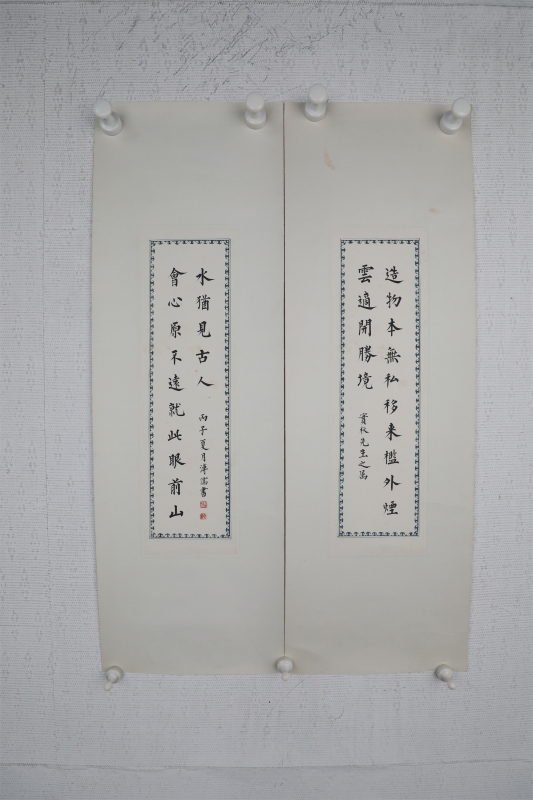 造物本無私移来檻外煙
雲適開勝境
先生之
會心原不遠就此眼前山
水猶見古人
丙子夏月溥儒書